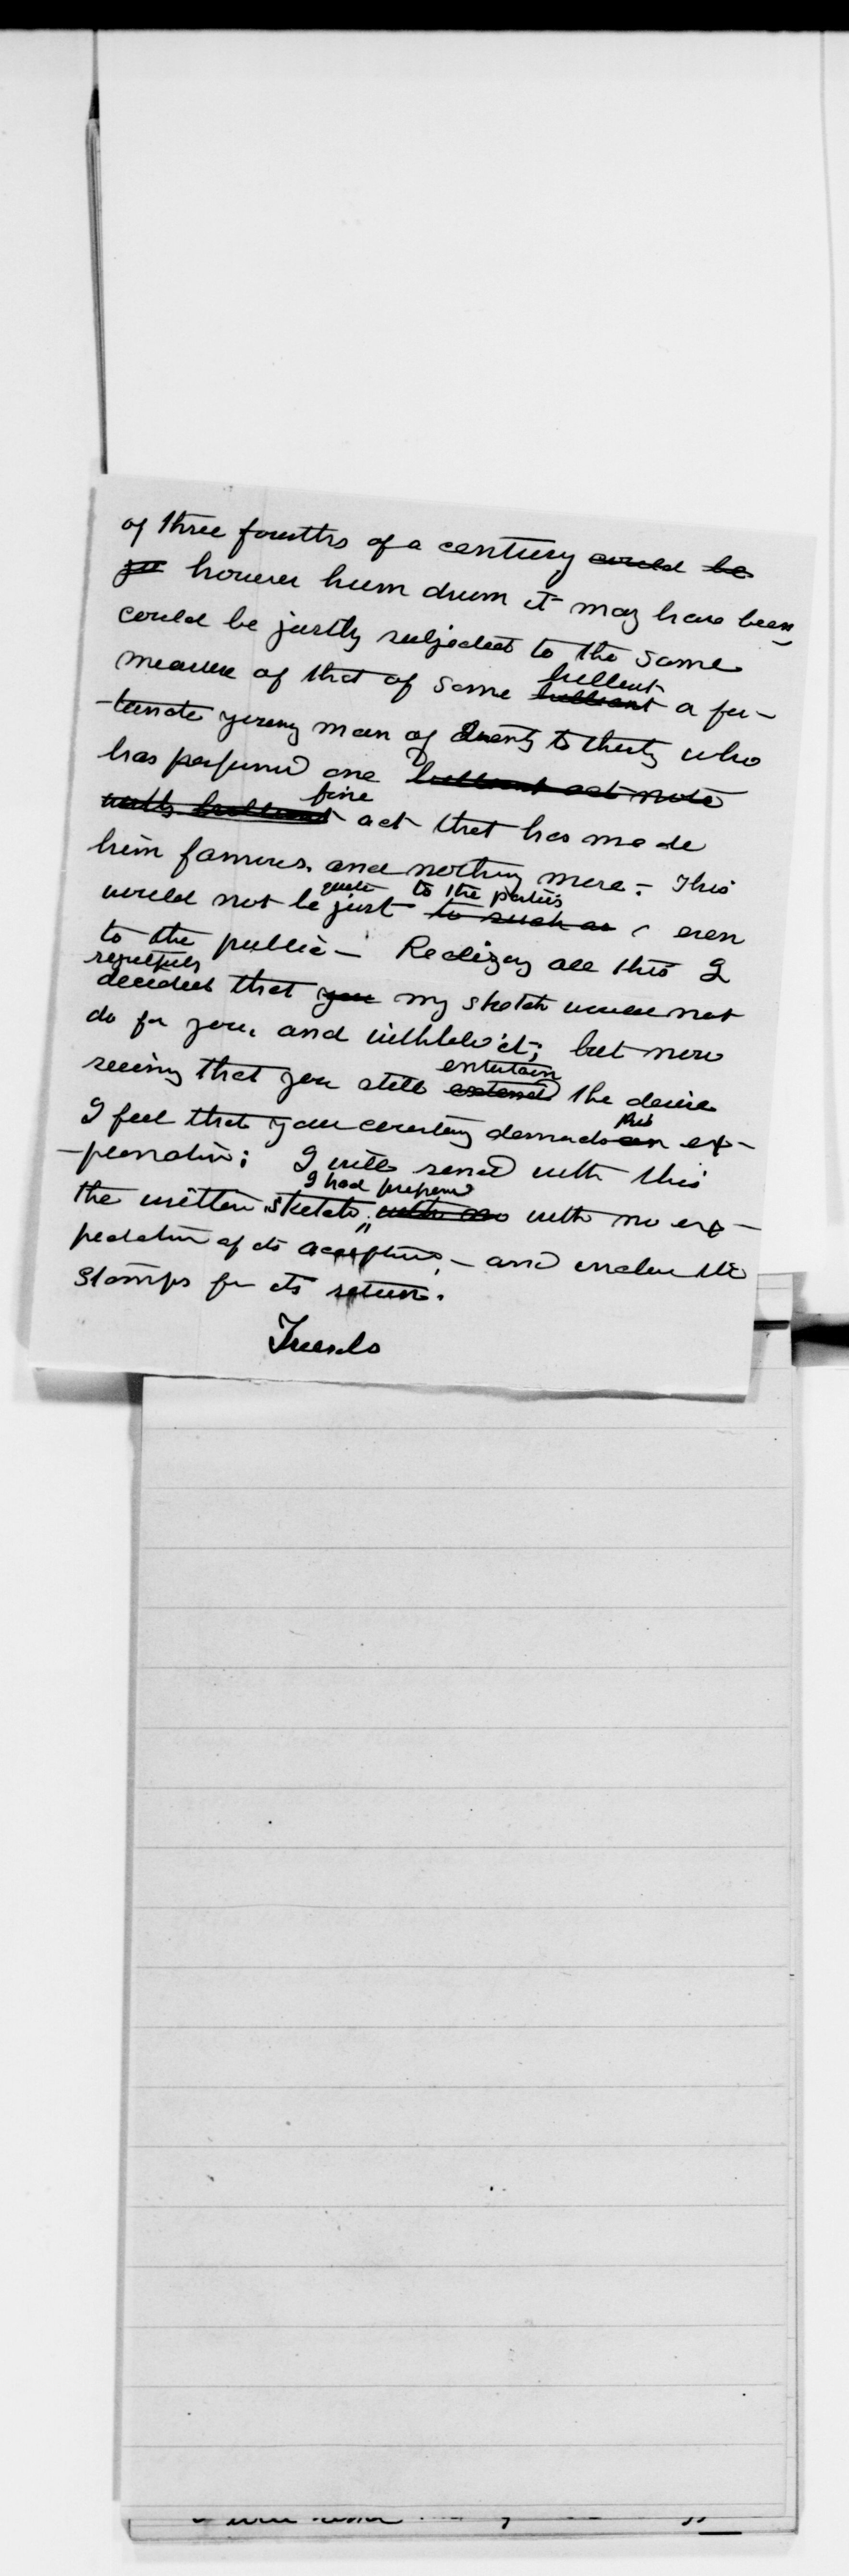 of three fourths of a century could be
ju however hum drum it may have been,
could be justly subjected to the same
brilliant
measure of that of some brilliant a for-
-tunate young man of twenty to thirty who
has performed one brilliant act note
fine
with brilliant act that has made
him famous, and nothing more. This
quite to the parties
would not be just to such as even
to the public – Realizing all this I
regretfully
decided that you my sketch would not
do for you, and withheld it; but now
entertain
seeing that you still extend the desire
this
I feel that your courtesy demands an ex-
-planation; I will send with this
I had prepared
the written sketch, with no with no ex-
pectation of its acceptance, – and enclose the
stamps for its return.